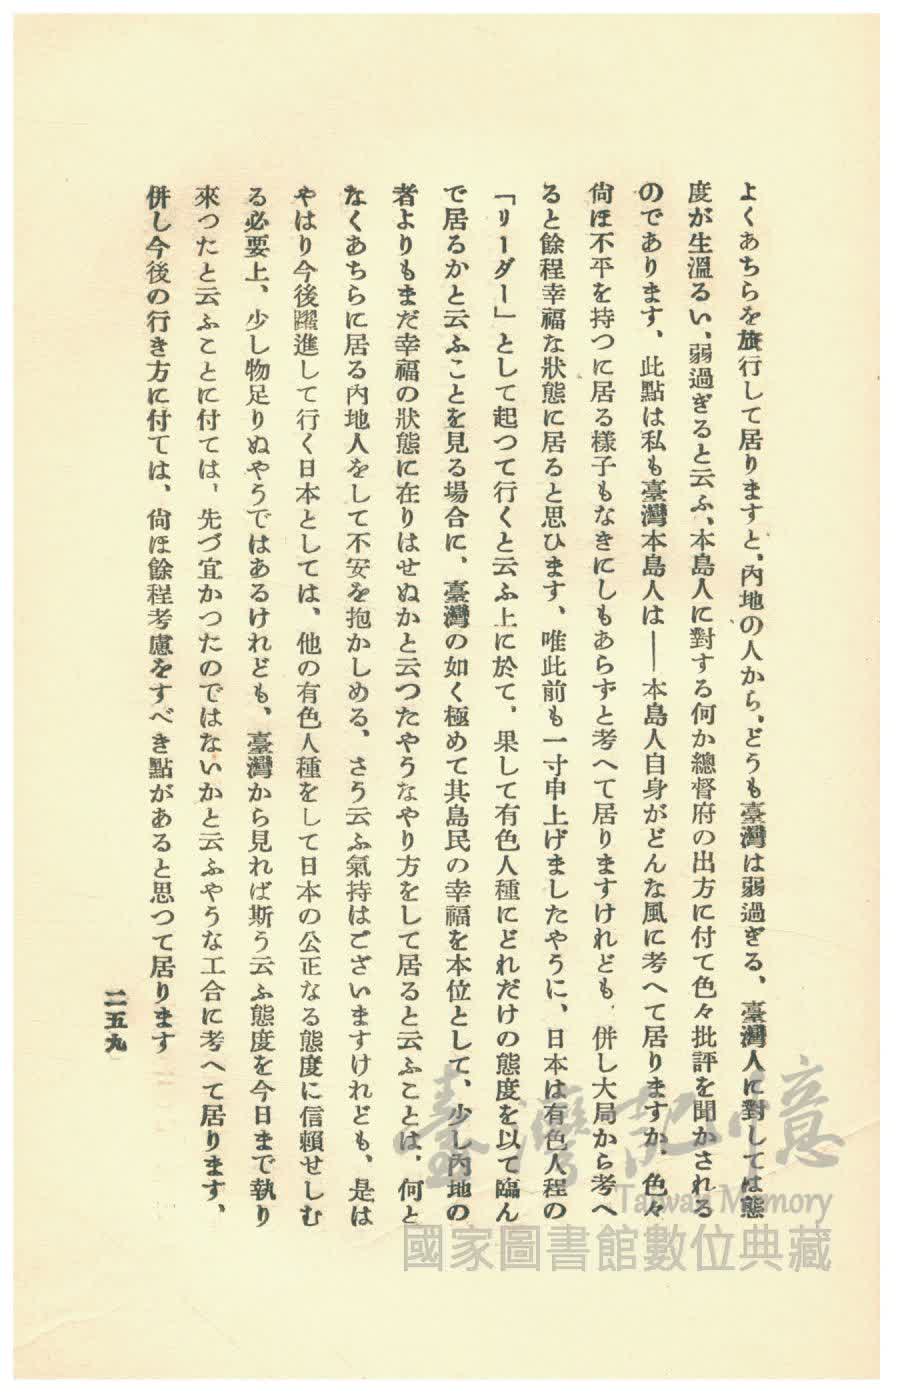 よくあちらを旅行して居りますと、內地の人から、どうも臺灣は弱過ぎる、臺灣人に對しては態
度が生溫るい、弱過ぎると云ふ、本島人に對する何か總督府の出方に付て色々批評を聞かされる
のであります、此點は私も臺灣本島人は――本島人自身がどんな風に考へて居りますか、色々
尙ほ不平を持つに居る樣子もなきにしもあらずと考へて居りますけれども、併し大局から考へ
ると餘程幸福な狀態に居ると思ひます、唯此前も一寸申上げましたやうに、日本は有色人程の
「リーダー」として起つて行くと云ふ上に於て、果して有色人種にどれだけの態度を以て臨ん
で居るかと云ふことを見る場合に、臺灣の如く極めて其島民の幸福を本位として、少し內地の
者よりもまだ幸福の狀態に在りはせぬかと云つたやうなやり方をして居ると云ふことは、何と
なくあちらに居る內地人をして不安を抱かしめる、さう云ふ氣持はございますけれども、是は
やはり今後躍進して行く日本としては、他の有色人種をして日本の公正なる態度に信賴せしむ
る必要上、少し物足りぬやうではあるけれども、臺灣から見れば斯う云ふ態度を今日まで執り
來つたと云ふことに付ては、先づ宜かつたのではないかと云ふやうな工合に考へて居ります、
併し今後の行き方に付ては、尙ほ餘程考慮をすべき點があると思つて居ります
二五九
臺灣記憶
Taiwan Memory
國家圖書館數位典藏